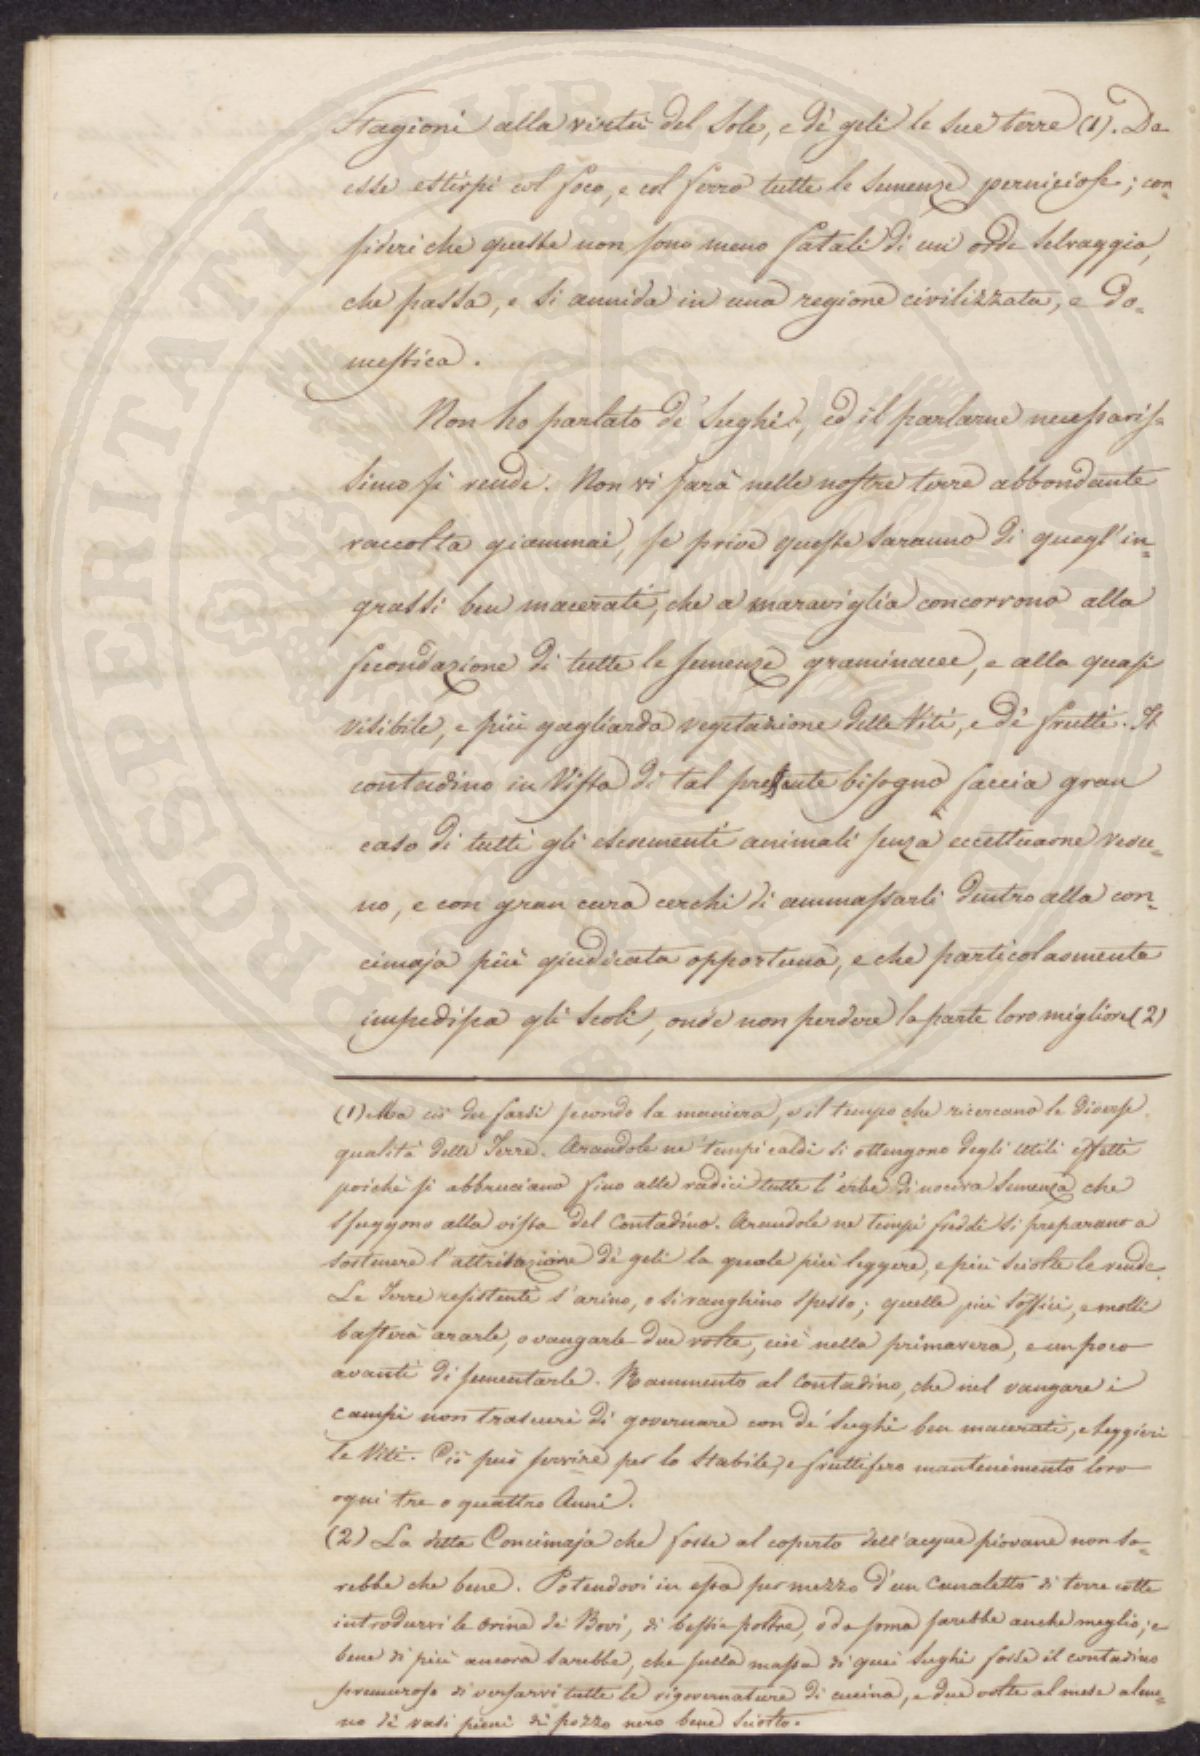 Stagioni alla virtù del Sole, e dè geli le sue terre (1). Da
esse estirpi col foco, e col ferro tutte le semenze perniciose; con-
sideri che queste non sono meno fatali di un' orda selvaggia,
che passa, e si annida in una regione civilizzata, e do-
mestica.
Non ho parlato de' sughi, ed il parlarne necessaris-
simo si rende. Non vi sarà nelle nostre terre abbondante
raccolta giammai, se prive queste saranno di quegl'in-
grassi ben macerati, che a maraviglia concorrono alla
fecondazione di tutte le semenze graminacee, e alla quasi
visibile, e più gagliarda vegetazione delle Viti, e dè frutti. Il
contadino in vista di tal presente bisogno faccia gran
caso di tutti gli escrementi animali senza eccettuarne veru-
no, e con gran cura cerchi di ammassarli dentro alla con-
cimaja più giudicata opportuna, e che particolarmente
impedisca gli scoli, onde non perdere la parte loro migliore (2)
(1) Ma ciò dee farsi secondo la maniera, e il tempo che ricercano le diverse
qualità delle Terre. Arandole ne' tempi caldi si ottengono degli utili effetti
poichè si abbruciano fino alle radici tutte l'erbe di nociva semenza che
sfuggono alla vista del Contadino. Arandole ne tempi freddi si preparano a
sostenere l'attritazione dè geli la quale più leggere, e più sciolte le rende.
Le Terre resistenti s'arino, o si vanghino spesso; quelle più soffici, e molli
basterà ararle, o vangarle due volte, cioè nella primavera, e un poco
avanti di sementarle. Rammento al Contadino, che nel vangare i
campi non trascuri di governare con de' sughi ben macerati, e leggieri
le Viti. Ciò può servire per lo stabile, e fruttifero mantenimento loro
ogni tre o quattro Anni.
(2) La detta Concimaja che fosse al coperto dell'acque piovane non sa-
rebbe che bene. Potendovi in essa per mezzo d'un Canaletto di terre cotte
introdurvi le orine dè Bovi, di bestie poltre, o da soma sarebbe anche meglio; e
bene di più ancora sarebbe, che sulla massa di quei sughi fosse il contadino
premuroso di versarvi tutte le rigovernature di cucina, e due volte al mese alme-
no dè vasi pieni di pozzo nero bene sciolto.
PROSPERITATI PUBLICAE